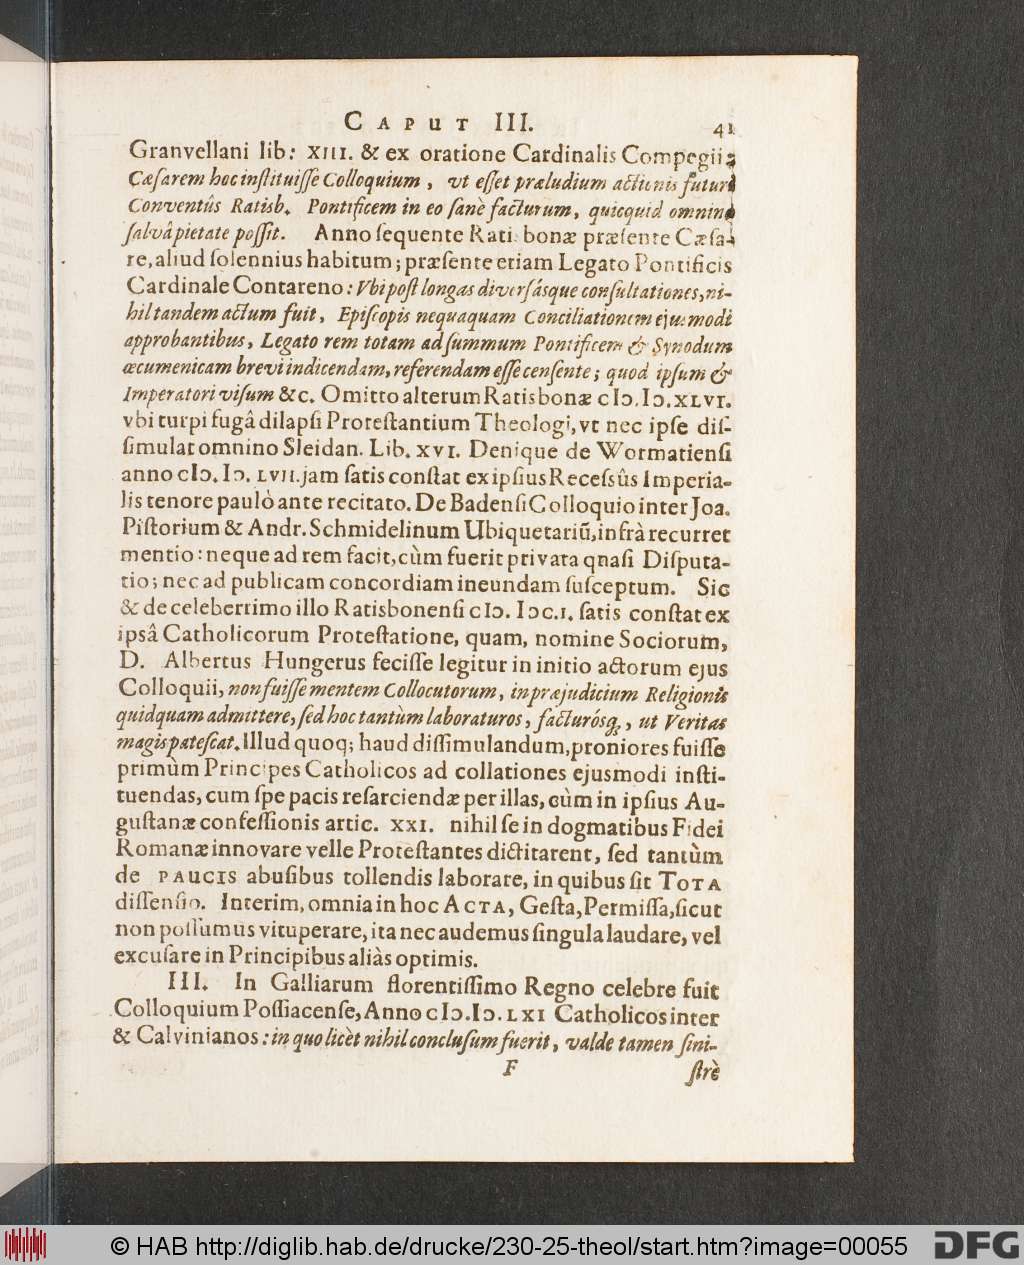 CAPUT III. 41
Granvellani lib: XIII. & ex oratione Cardinalis Compegii;
Cæſarem hoc inſtituiſſe Colloquium, vt eſſet præludium actionis futuri
Conventûs Ratisb. Pontificem in eo ſanè facturum, quicquid omnino
ſalvâ pietate poſſit. Anno ſequente Ratisbonæ præſente Cæſa-
re, aliud ſolennius habitum; præſente etiam Legato Pontificis
Cardinale Contareno: Vbi poſt longas diverſásque conſultationes, ni-
hil tandem actum fuit, Epiſcopis nequaquam Conciliationem ejusmodi
approbantibus, Legato rem totam ad ſummum Pontificem & Synodum
œcumenicam brevi indicendam, referendam eſſe cenſente; quod ipſum &
Imperatori viſum &c. Omitto alterum Ratisbonæ cIↃ.IↃ.XLVI.
vbi turpi fugâ dilapſi Proteſtantium Theologi, vt nec ipſe diſ-
ſimulat omnino Sleidan. Lib. XVI. Denique de Wormatienſi
anno cIↃ.IↃ. LVII. jam ſatis conſtat ex ipſius Receſsûs Imperia-
lis tenore paulò ante recitato. De Badenſi Colloquio inter Joa.
Piſtorium & Andr. Schmidelinum Ubiquetariū, infrà recurret
mentio: neque ad rem facit, cùm fuerit privata qnaſi Diſputa-
tio; nec ad publicam concordiam ineundam ſuſceptum. Sic
& de celeberrimo illo Ratisbonenſi cIↃ. IↃc.I. ſatis conſtat ex
ipſâ Catholicorum Proteſtatione, quam, nomine Sociorum,
D. Albertus Hungerus feciſſe legitur in initio actorum ejus
Colloquii, non fuiſſe mentem Collocutorum, in præjudicium Religionis
quidquam admittere, ſed hoc tantùm laboraturos, facturósq;, ut Veritas
magis pateſcat. Illud quoq; haud diſſimulandum, proniores fuiſſe
primùm Principes Catholicos ad collationes ejusmodi inſti-
tuendas, cum ſpe pacis reſarciendæ per illas, cùm in ipſius Au-
guſtanæ confeſſionis artic. XXI. nihil ſe in dogmatibus Fidei
Romanæ innovare velle Proteſtantes dictitarent, ſed tantùm
de PAUCIS abuſibus tollendis laborare, in quibus ſit TOTA
diſſenſio. Interim, omnia in hoc ACTA, Geſta, Permiſſa, ſicut
non poſſumus vituperare, ita nec audemus ſingula laudare, vel
excuſare in Principibus aliàs optimis.
III. In Galliarum florentiſſimo Regno celebre fuit
Colloquium Poſſiacenſe, Anno cIↃ.IↃ.LXI Catholicos inter
& Calvinianos: in quo licèt nihil concluſum fuerit, valde tamen ſini-
F ſtrè
© HAB http://diglib.hab.de/drucke/230-25-theol/start.htm?image=00055 DFG